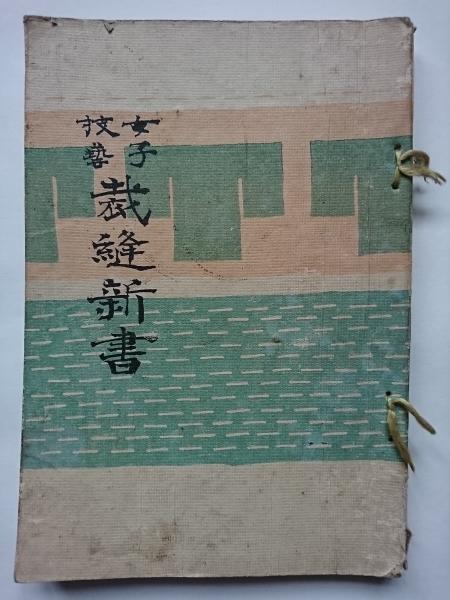 女子
技藝
裁縫新書